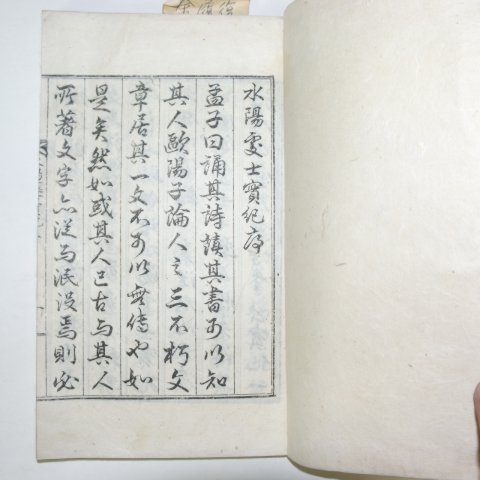 水陽處士實紀序
孟子曰誦其詩讀其書可以知
其人歐陽子論人之三不朽文
章居其一文不可以無傳也如
是矣然如或其人已古而其人
所著文字亦從而泯沒焉則必